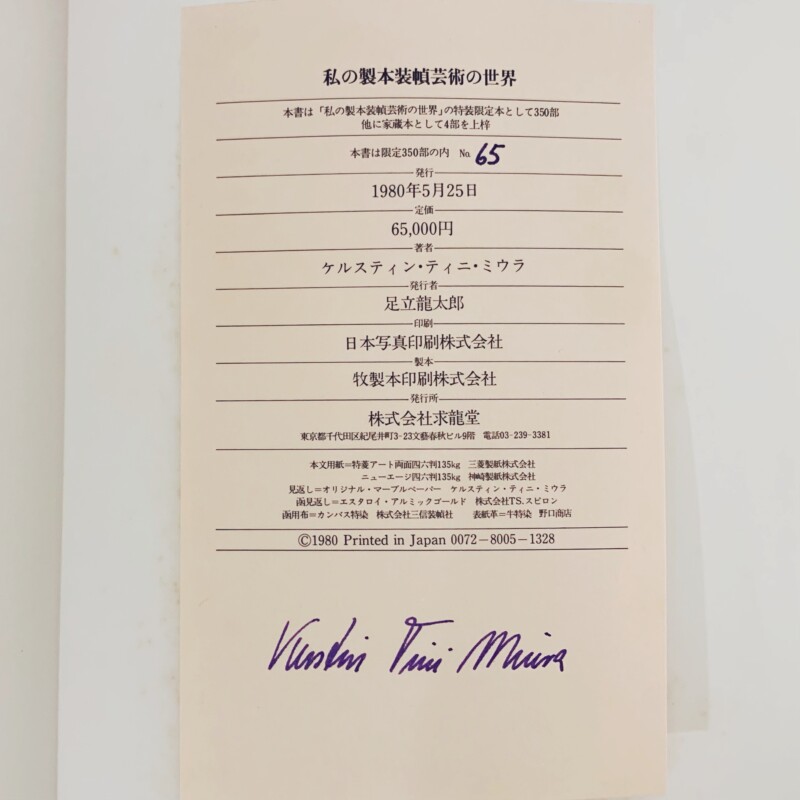 私の製本装幀芸術の世界
本書は「私の製本装幀芸術の世界」の特装限定本として350部
他に家蔵本として4部を上梓
本書は限定350部の内 No. 65
発行
1980年5月25日
定価
65,000円
著者
ケルスティン・ティニ・ミウラ
発行者
足立龍太郎
印刷
日本写真印刷株式会社
製本
牧製本印刷株式会社
発行所
株式会社求龍堂
東京都千代田区紀尾井町3-23文藝春秋ビル9階 電話03-239-3381
本文用紙=特菱アート両面四六判135kg 三菱製紙株式会社
ニューエージ四六判135kg 神崎製紙株式会社
見返し=オリジナル・マーブルペーパー ケルスティン・ティニ・ミウラ
函見返し=エスタロイ・アルミックゴールド 株式会社TS.スピロン
函用布=カンバス特染 株式会社三信装幀社 表紙革=牛特染 野口商店
©1980 Printed in Japan 0072-8005-1328
Kerstin Tini Miura